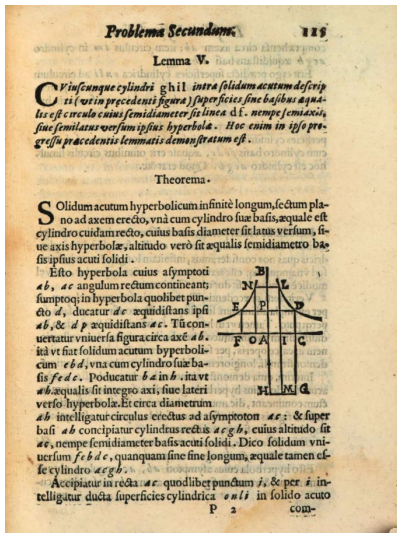 Problema Secundum. 115
Lemma V.
CViuscunque cylindri ghil intra solidum acutum descrip
ti (vt in præcedenti figura) superficies sine basibus æqua-
lis est circulo cuius semidiameter sit linea df. nempe semiaxis,
siue semilatus versum ipsius hyperbolæ. Hoc enim in ipso pro-
gressu præcedentis lemmatis demonstratum est.
Theorema.
SOlidum acutum hyperbolicum infinitè longum, sectum pla-
no ad axem erecto, vnà cum cylindro suæ basis, æquale est
cylindro cuidam recto, cuius basis diameter sit latus versum, si-
ue axis hyperbolæ, altitudo verò sit æqualis semidiametro ba-
sis ipsius acuti solidi.
Esto hyperbola cuius asymptoti
ab, ac angulum rectum contineant;
sumptoq; in hyperbola quolibet pun-
cto d, ducatur dc æquidistans ipsi
ab, & dp æquidistans ac. Tū con-
uertatur vniuersa figura circa axē ab.
ità vt fiat solidum acutum hyperboli-
cum ebd, vna cum cylindro suæ ba-
sis fedc. Poducatur ba in h. ita vt
ah. æqualis sit integro axi, siue lateri
verso hyperbolæ. Et circa diametrum
ah intelligatur circulus erectus ad asymptoton ac: & super
basi ah concipiatur cylindrus rectus acgh, cuius altitudo sit
ac, nempe semidiameter basis acuti solidi. Dico solidum vni-
uersum febdc, quanquam sine fine longum, æquale tamen es-
se cylindro acgh.
Accipiatur in recta ac quodlibet punctum i, & per i in-
telligatur ducta superficies cylindrica onli in solido acuto
P 2 com-
B
N L
E P D
F O A I C
H M G